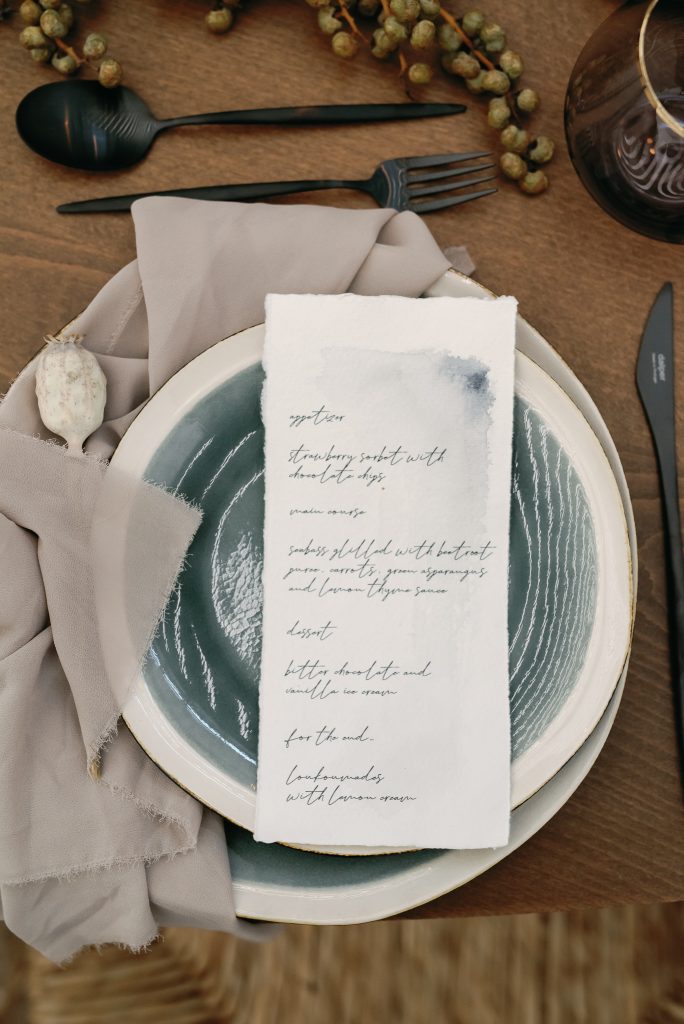 appetizer
strawberry sorbet with
chocolate chips
main course
seabass glilled with beetroot
puree, carrots, green asparaugus
and lemon thyme sauce
dessert
bitter chocolate and
vanilla ice cream
for the end..
loukoumades
with lemon cream